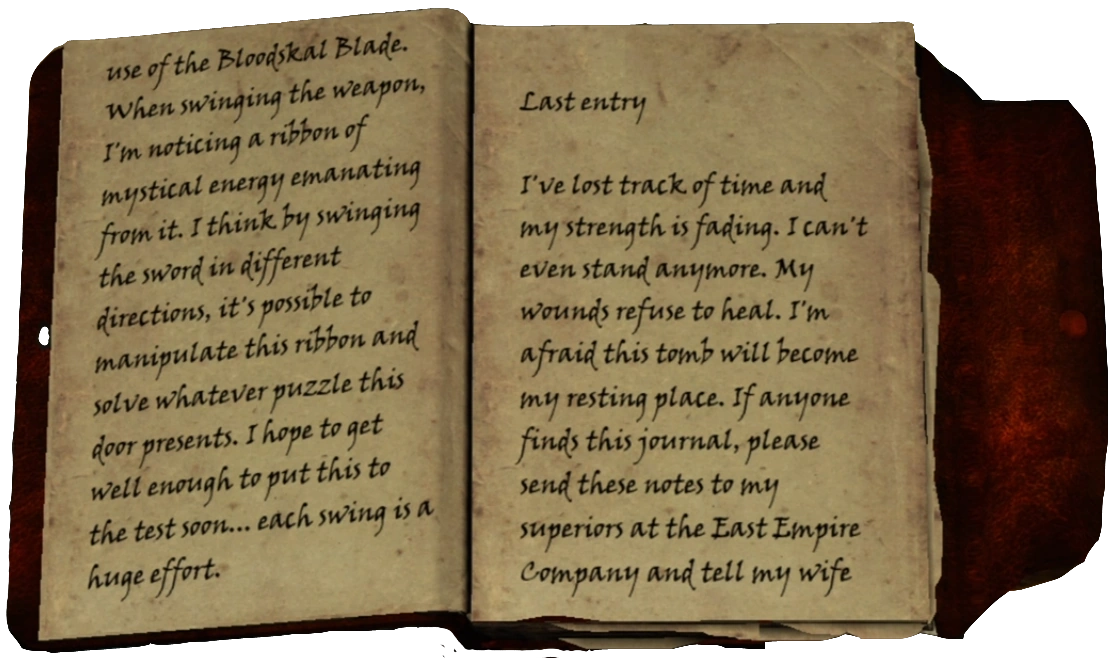 use of the Bloodskal Blade.
When swinging the weapon,
I'm noticing a ribbon of
mystical energy emanating
from it. I think by swinging
the sword in different
directions, it's possible to
manipulate this ribbon and
solve whatever puzzle this
door presents. I hope to get
well enough to put this to
the test soon... each swing is a
huge effort.
Last entry
I've lost track of time and
my strength is fading. I can't
even stand anymore. My
wounds refuse to heal. I'm
afraid this tomb will become
my resting place. If anyone
finds this journal, please
send these notes to my
superiors at the East Empire
Company and tell my wife